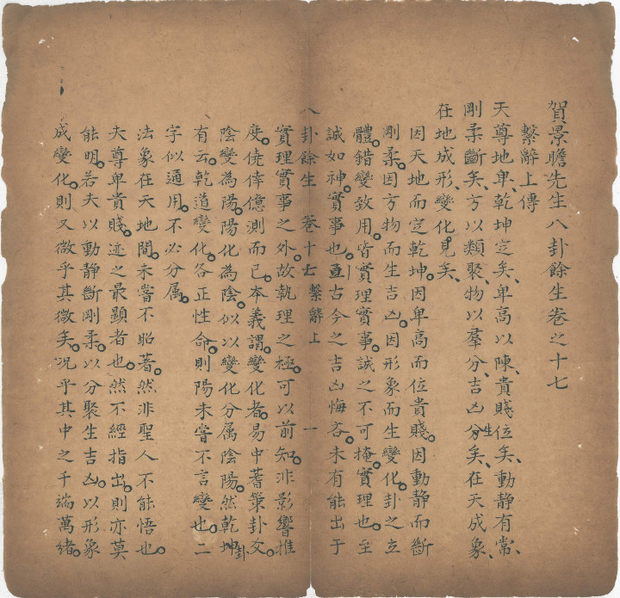 賀景瞻先生八卦餘生卷之十七
繫辭上傳
天尊地卑、乾坤定矣、卑高以陳、貴賤位矣、動靜有常、
剛柔斷矣、方以類聚、物以羣分、吉凶生矣、在天成象、
在地成形、變化見矣、
因天地而定乾坤。因卑高而位貴賤。因動靜而斷
剛柔。因方物而生吉凶。因形象而生變化。卦之立
體。錯變致用。皆實理實事。誠之不可掩。實理也。至
誠如神。實事也。亘古今之吉凶悔吝。未有能出于
八卦餘生 卷十七 繫辭上 一
實理實事之外。故執理之極。可以前知。非影響推
度。僥倖億測而已。本義謂。變化者。易中蓍策卦爻。
陰變為陽。陽化為陰。似以變化分属陰陽。然乾卦
有云。乾道變化。各正性命。則陽未嘗不言變也。二
字似通用。不必分属。
法象在天地間。未嘗不昭著。然非聖人不能悟也。
夫尊卑貴賤。迹之最顯者也。然不經指出。則亦莫
能明。若夫以動靜斷剛柔。以分聚生吉凶。以形象
成變化。則又微乎其微矣。况乎其中之千端萬緒。